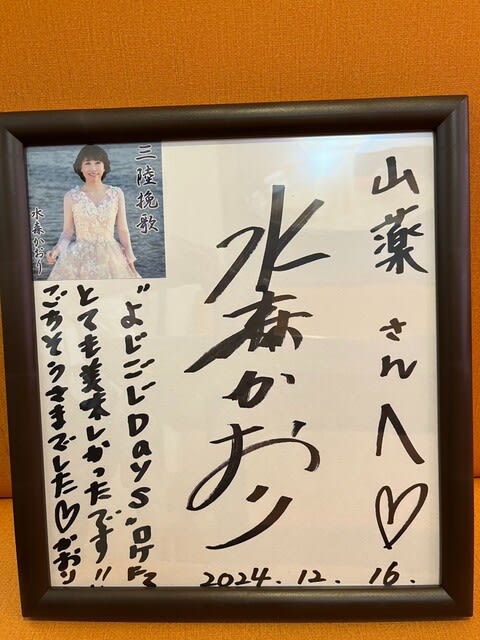 山薬さんへ♡
水森かおり
三陸挽歌
水森かおり
"よじごじDays"ロケにて
とても美味しかったです!!
ごちそうさまでした♡かおり
2024.12.16.